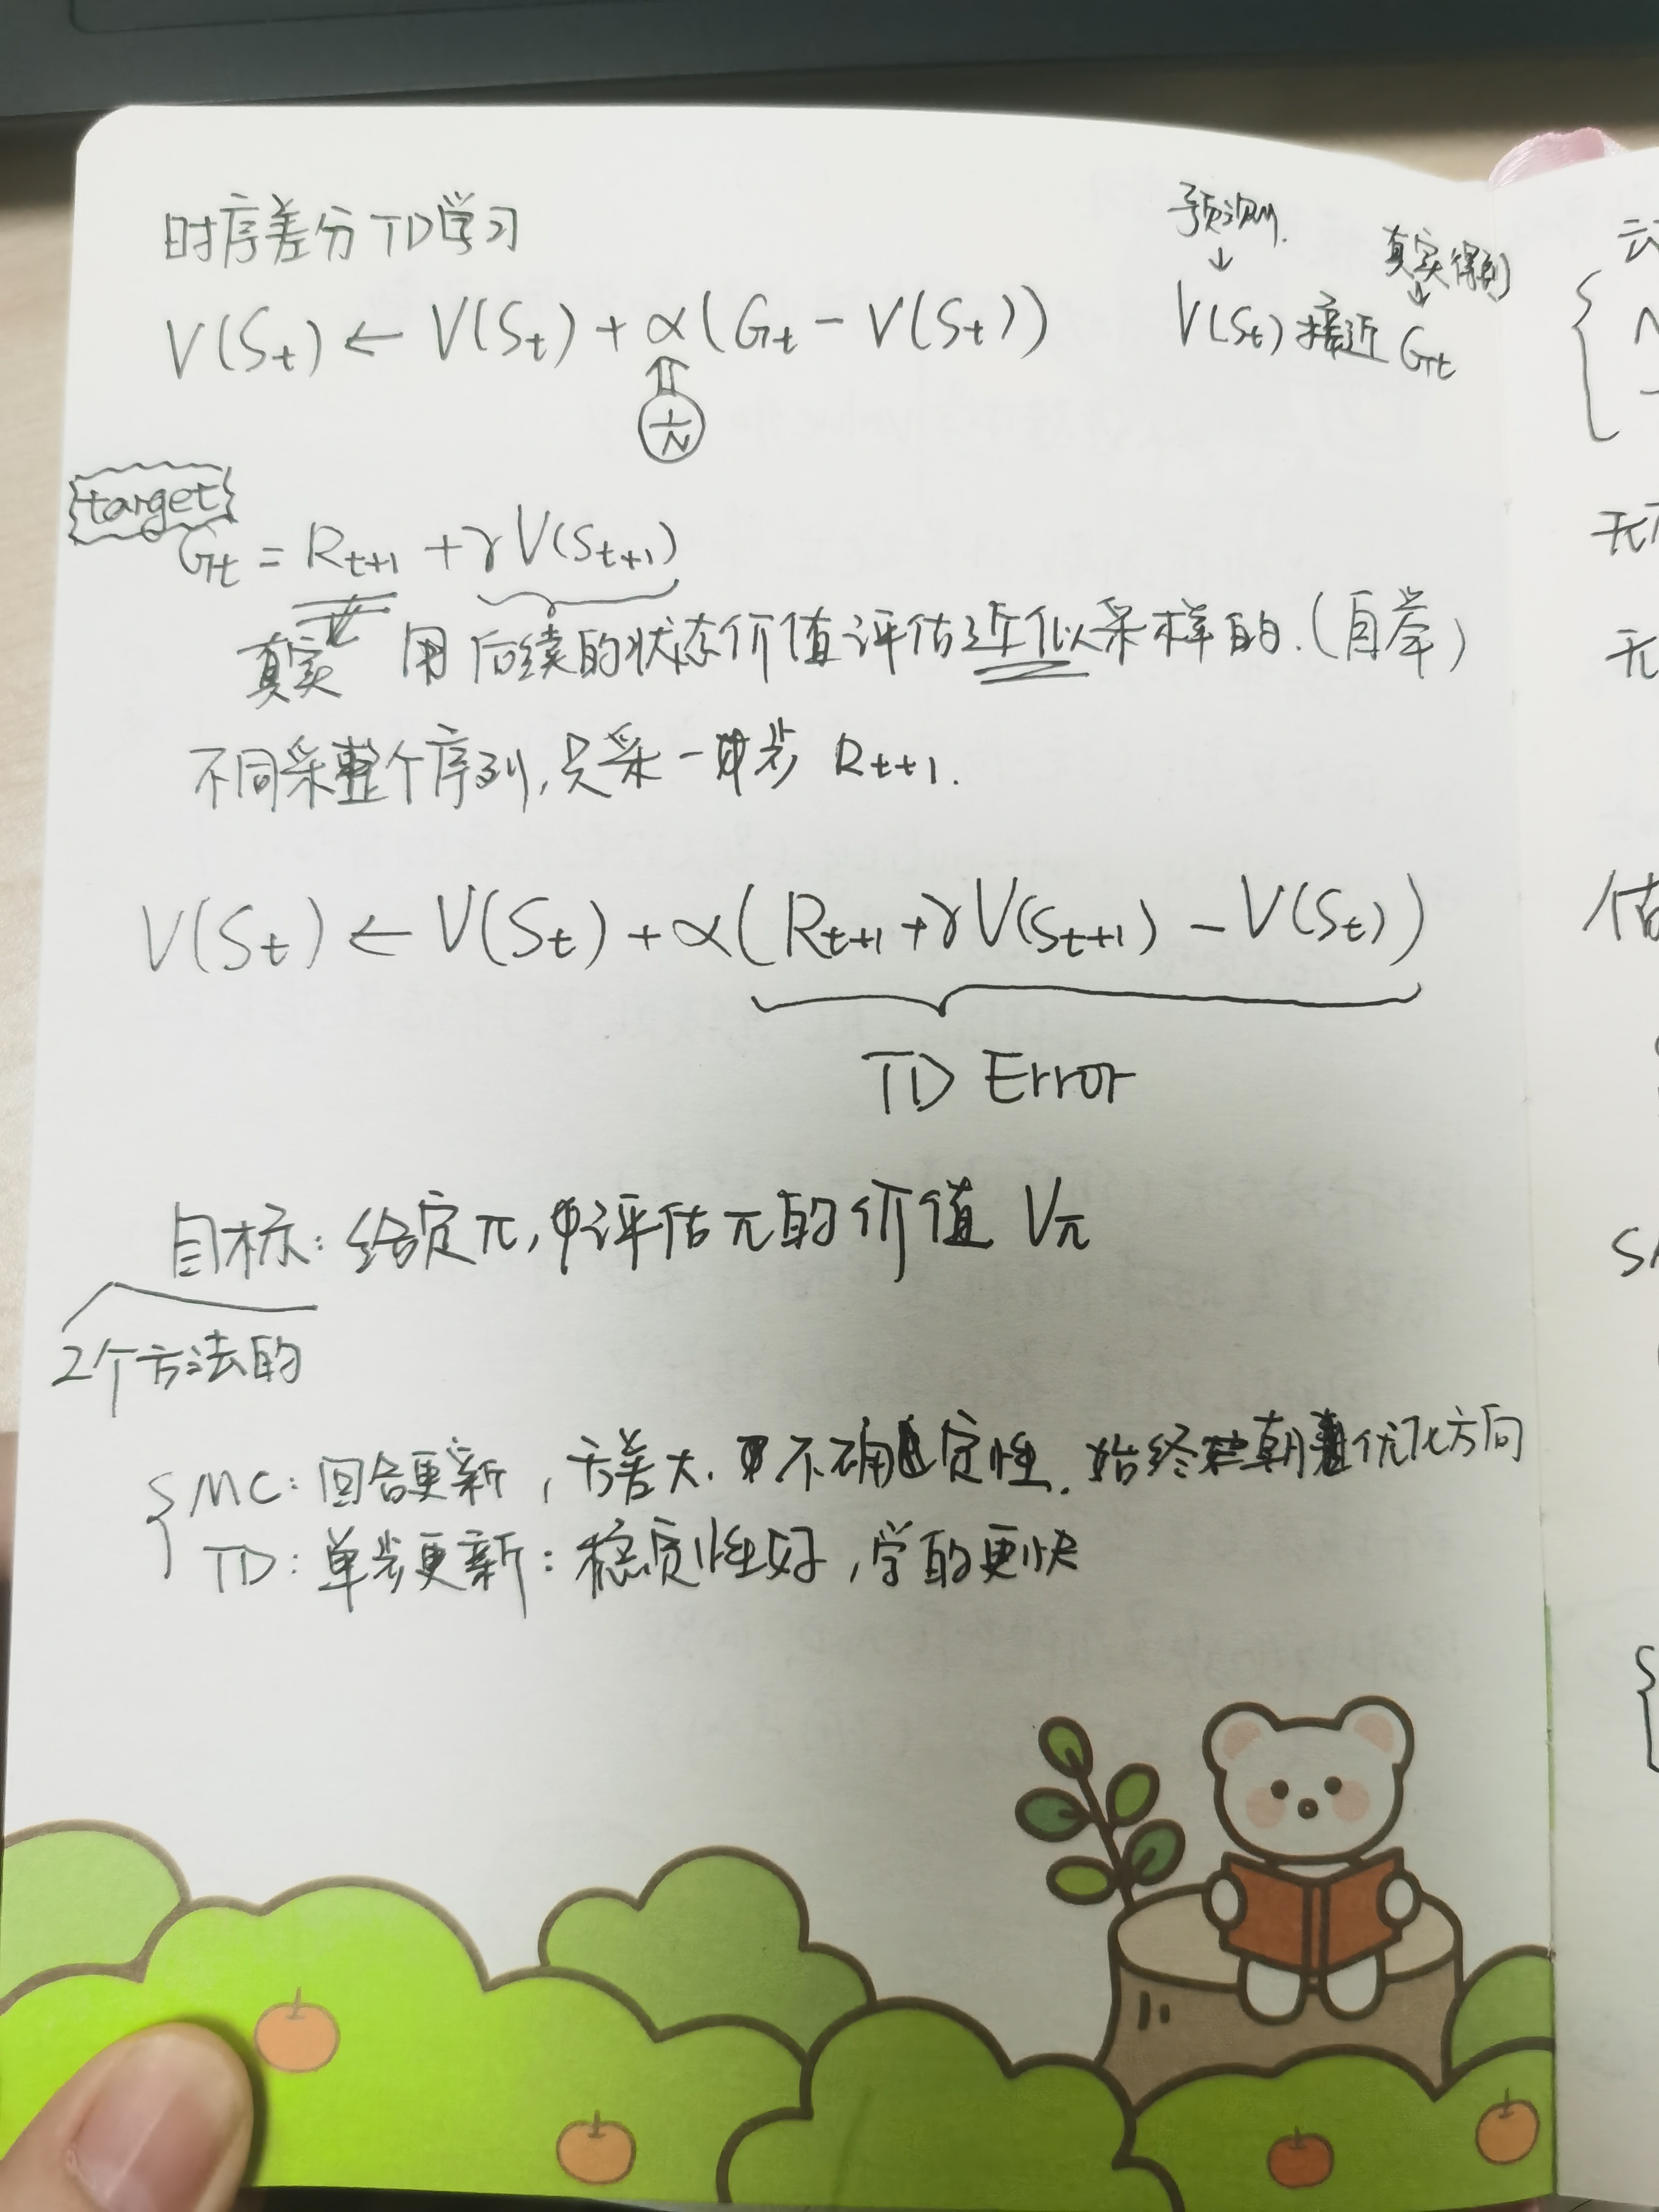 时序差分 TD学习
预测
真实得到
V(St) ← V(St) + α(Gt - V(St))
V(St) 接近 Gt
1/N
target
Gt = Rt+1 + γV(St+1)
真实 用后续的状态价值评估近似采样的.(自举)
不同采整个序列,只采一步 Rt+1.
V(St) ← V(St) + α(Rt+1 + γV(St+1) - V(St))
TD Error
目标: 给定π, 评估π的价值 Vπ
2个方法的
MC: 回合更新, 方差大. 不确定性. 始终朝着优化方向
TD: 单步更新: 稳定性好, 学的更快
无
无
估
S